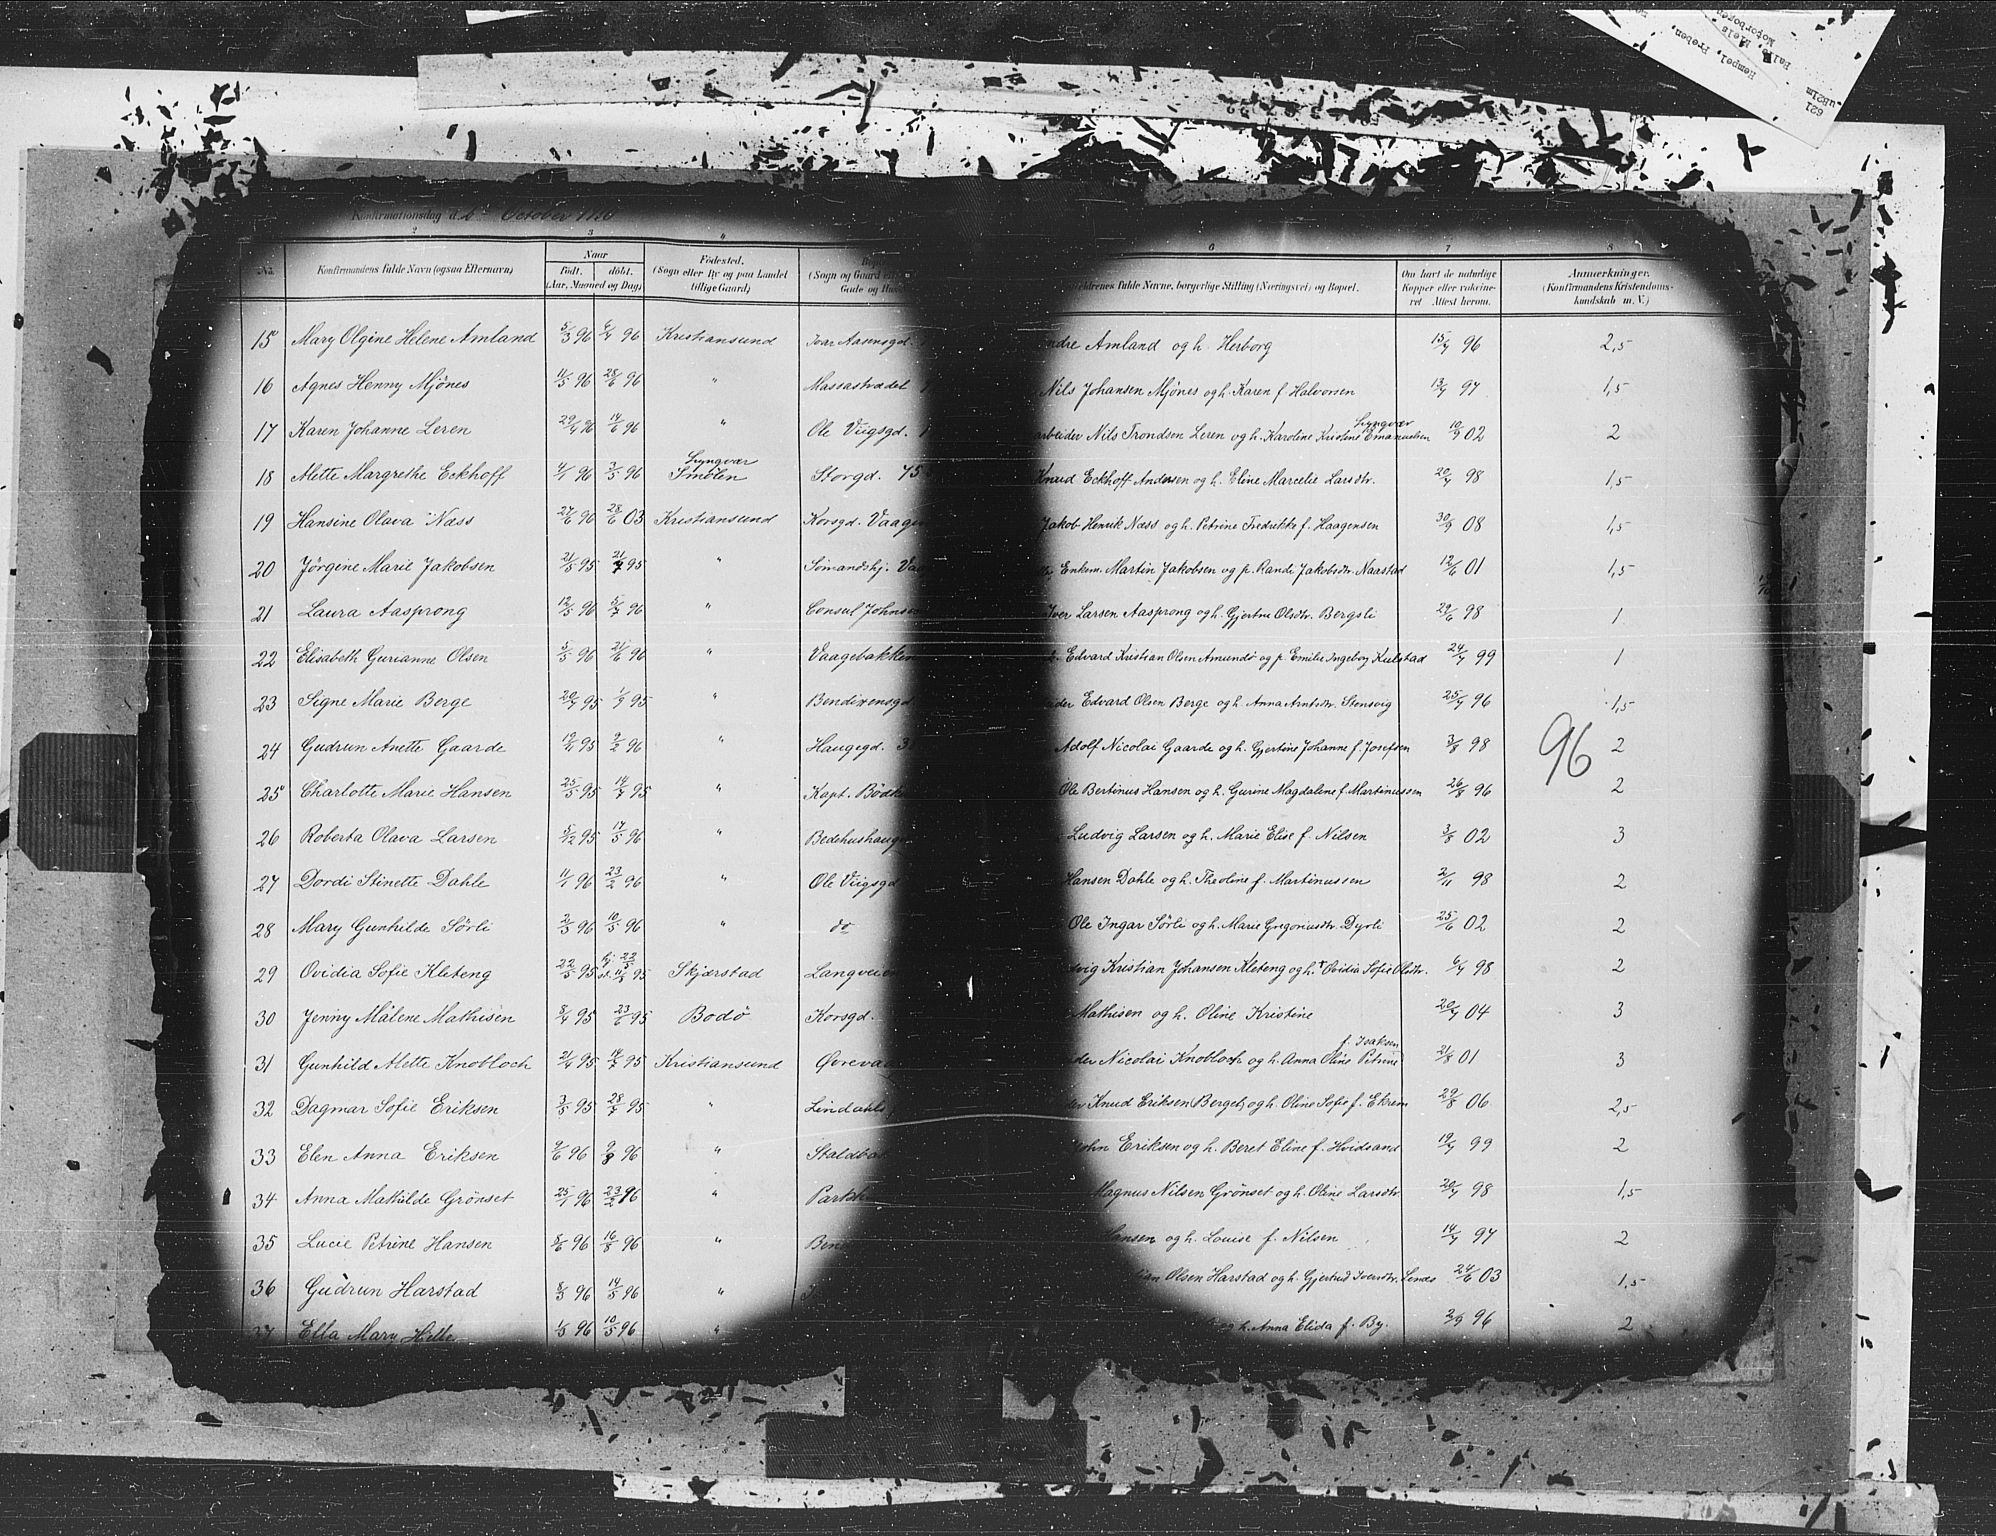 Konfirmationsdag d. October
2 3 4 6 7 8
No. Konfirmandens fulde Navn (ogsaa Efternavn) Naar Født. døbt. (Aar, Maaned og Dag) Fødested. (Sogn eller By og paa Landet tillige Gaard) (Sogn og Gaard Gade og fulde Navne, borgerlige Stilling (Næringsvei) og Bopæl. Om havt de naturlige Kopper eller vaccineret Attest herom. Anmærkninger. (Konfirmandens Kristendomskundskab m. V.)
15 Mary Olgine Helene Amland 5/3 96 6/4 96 Kristiansund Ivar Aasensgd. Amland og h. Herborg 15/7 96 2,5
16 Agnes Henny Mjönes 11/5 96 28/6 96 " Massastrædet Nils Johansen Mjönes og h. Karen f. Halvorsen 13/7 97 1,5
17 Karen Johanne Leren 29/4 96 14/6 96 " Ole Vugsgd. arbeider Nils Trondsen Leren og h. Karoline Kristine Emanuelsen Lyngvær 10/9 02 2
18 Alette Margrethe Eckhoff 4/1 96 3/5 96 Lyngvær Smølen Storgd. 75 Knud Eckhoff Andersen og h. Eline Marcelie Larsdtr. 20/7 98 1,5
19 Hansine Olava Næss 27/6 96 28/6 03 Kristiansund Korsgd. Jakob Henrik Næss og h. Petrine Fredrikke f. Haagensen 30/9 08 1,5
20 Jørgine Marie Jakobsen 21/5 95 21/7 95 " Sömandshj. Enkem. Martin Jakobsen og p. Rande Jakobsdtr. Naastad 12/6 01 1,5
21 Laura Aasprong 12/5 96 5/7 96 " Consul Iver Larsen Aasprong og h. Gjertine Olsdtr. Bergsli 29/6 98 1
22 Elisabeth Gurianne Olsen 3/5 96 21/6 96 " Vaagebakken Edvard Kristian Olsen Amundö og p. Emilie Ingeborg Kulstad 24/7 99 1
23 Signe Marie Berge 20/7 95 1/9 95 " Bendixensgd Edvard Olsen Berge og h. Anna Arntsdtr. Stensvig 25/7 96 1,5
24 Gudrun Anette Gaarde 95 2/2 96 " Haugegd. Adolf Nicolai Gaarde og h. Gjertine Johanne f. Josefsen 3/8 98 2
96
25 Charlotte Marie Hansen 25/5 95 14/7 95 " Kapt. Ole Bertinus Hansen og h. Gurine Magdalene f. Martinussen 26/8 96 2
26 Roberta Olava Larsen 5/12 95 17/5 96 " Bedehushaugen Ludvig Larsen og h. Marie Elise f. Nilsen 3/8 02 3
27 Dordi Stinette Dahle 11/1 96 23/2 96 " Ole Vugsgd Hansen Dahle og h. Theoline f. Martinussen 2/11 98 2
28 Mary Gunhilde Sörli 2/3 96 10/5 96 " do Ole Ingar Sörli og h. Marie Gregoriusdtr. Dyrli 25/6 02 2
29 Ovidia Sofie Kleteng 22/5 95 95 Skjærstad Langveien Kristian Johansen Kleteng og h. Ovidia Sofie Olsdtr. 6/7 98 2
30 Jenny Målene Mathisen 8/4 95 23/6 95 Bodö Korsgd. Mathisen og h. Oline Kristine 20/7 04 3
31 Gunhild Alette Knobloch 21/4 95 14/7 95 Kristiansund Nicolai Knobloch og h. Anna Oline Petrine f. Isaksen 2/8 01 3
32 Dagmar Sofie Eriksen 3/5 95 28/7 95 " Knud Eriksen og h. Oline Sofie f. Ekrem 29/8 06 2,5
33 Elen Anna Eriksen 2/6 96 9/8 96 " John Eriksen og h. Beret Eline f. Hvidsand 19/7 99 2
34 Anna Mathilde Grönset 25/1 96 23/2 96 " Magnus Nilsen Grönset og h. Oline Larsdtr. 20/7 98 1,5
35 Lucie Petrine Hansen 5/6 96 16/8 96 " Hansen og h. Louise f. Nilsen 14/7 97 2
36 Gudrun Harstad 8/3 96 14/5 96 " Olsen Harstad og h. Gjertrud Iversdtr. 24/6 03 1,5
37 Ella Mary 1/3 96 10/5 96 " og h. Anna Elida f. By. 2/9 96 2
Hempel, Preben.
Palle Niels
621